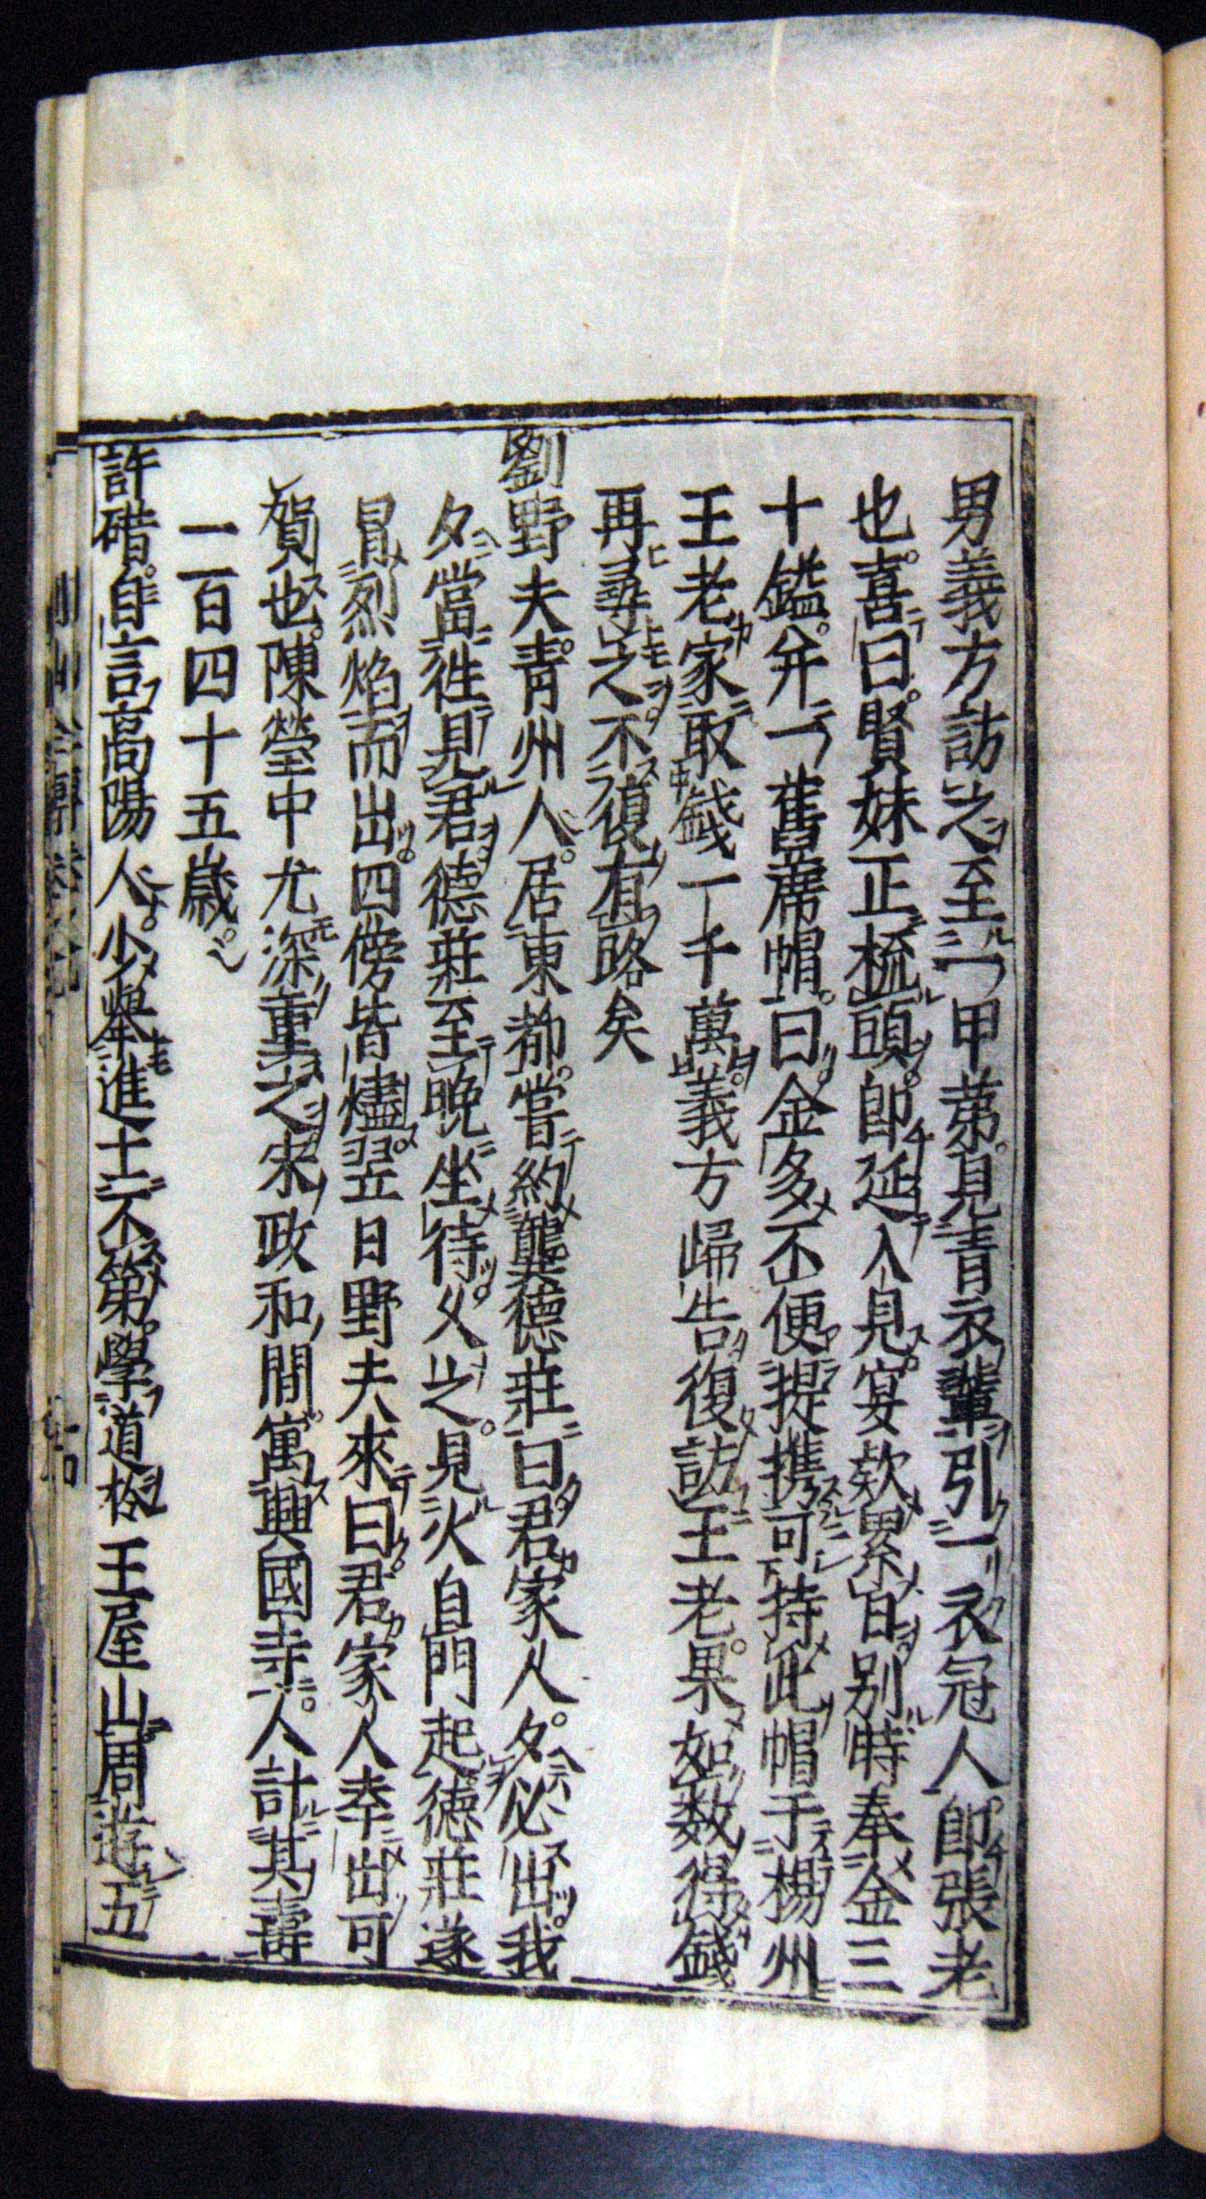 男義方訪之至一甲第見青衣輩引一衣冠人即張老
也喜曰賢妹正梳頭即延入見宴欵累日別時奉金三
十鎰并一舊席帽曰金多不便提携可持此帽于揚州
王老家取錢一千萬義方歸告復訪王老果如數得錢
再尋之不復有路矣
劉野夫青州人居東都嘗約龔德莊曰君家人夕必出我
夕當徃見君德莊至晚坐待久之見火自門起德莊遂
冒烈焰而出四傍皆燼翌日野夫來曰君家人幸出可
賀也陳瑩中尤深重之宋政和間寓興國寺人計其壽
一百四十五歲
許碏自言高陽人少舉進士不第學道於王屋山周遊五